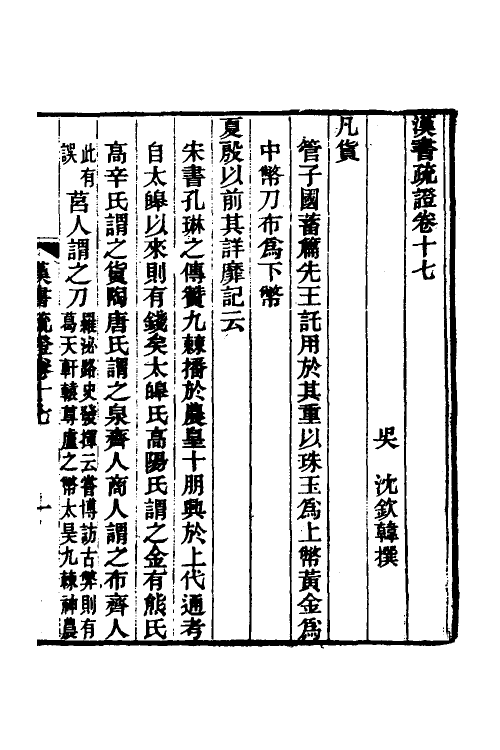 漢書疏證卷十七
吳　沈欽韓撰
凡貨
管子國蓄篇先王託用於其重以珠玉爲上幣黃金爲
中幣刀布爲下幣
夏殷以前其詳靡記云
宋書孔琳之傳贊九棘播於農皇十朋興於上代通考
自太皞以來則有錢矣太皞氏高陽氏謂之金有熊氏
高辛氏謂之貨陶唐氏謂之泉齊人商人謂之布齊人
此有
誤
莒人謂之刀
羅泌路史發揮云嘗博訪古弊則有
葛天軒轅尊盧之幣太昊九棘神農
漢書疏證卷十七
一